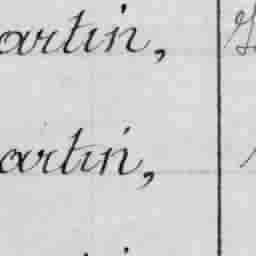 artin,
artin,